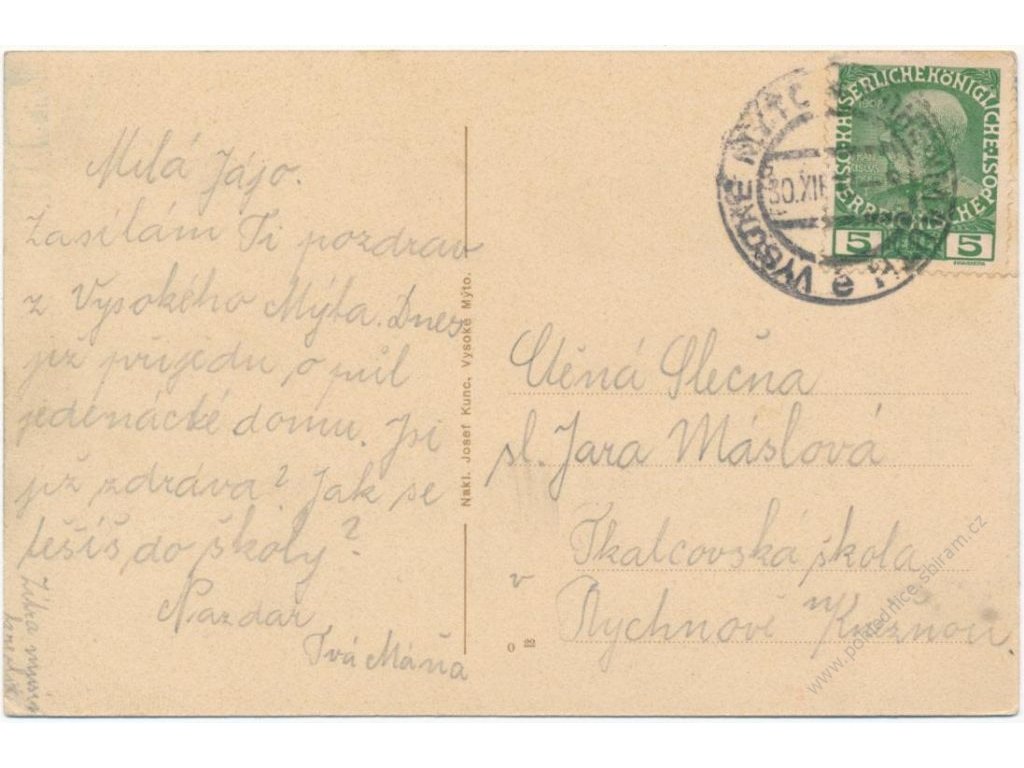 Milá Jájo.
Zasílám Ti pozdrav
z Vysokého Mýta. Dnes
již přijedu o půl
jedenácté domu. Jsi
již zdráva? Jak se
těšíš do školy?
Nazdar
Tvá Máňa
Nakl. Josef Kunc, Vysoké Mýto.
VYSOKÉ MÝTO
30.XII
e
KAISERLICHEKÖNIGLICHE
ÖSTERREICHISCHE POST
5 5
Ctěná Slečna
sl. Jara Máslová
Tkalcovská škola
v Rychnově n Kněžnou.
o 22
www.pohlednice.sbiram.cz